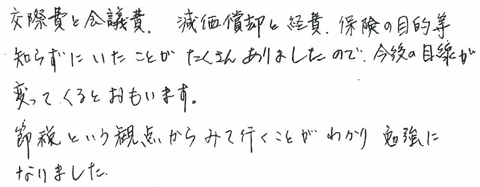 交際費と会議費、減価償却と経費、保険の目的等
知らずにいたことがたくさんありましたので、今後の目線が
変ってくるとおもいます。
節税という観点からみて行くことがわかり勉強に
なりました。